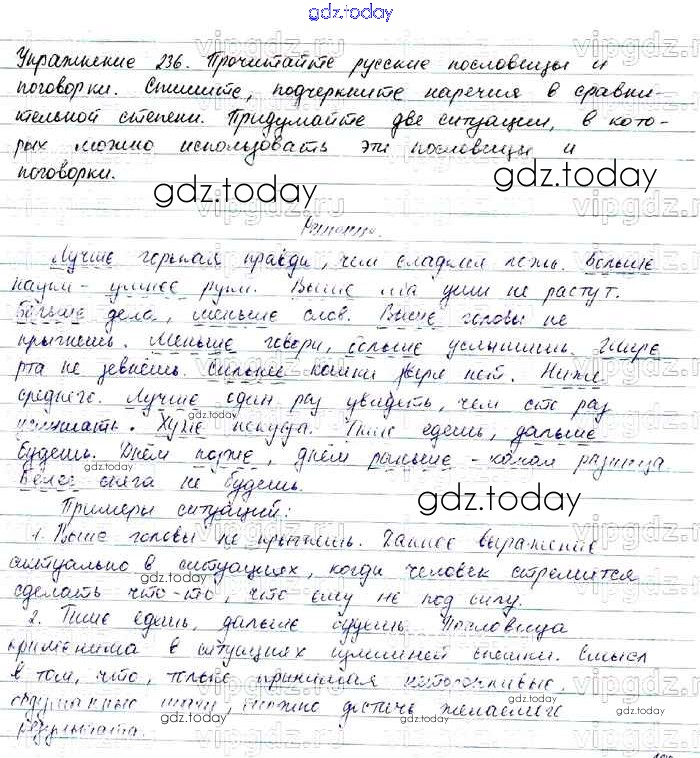 gdz.today
Упражнение 236. Прочитайте русские пословицы и
поговорки. Спишите, подчеркните наречия в сравни-
тельной степени. Придумайте две ситуации, в кото-
рых можно использовать эти пословицы и
поговорки.
gdz.today
gdz.today
Решение.
Лучше горькая правда, чем сладкая ложь. Больше
науки - умнее руки. Выше лба уши не растут.
Больше дела, меньше слов. Выше головы не
прыгнешь. Меньше говори, больше услышишь. Шире
рта не зевнёшь. Сильнее кошки зверя нет. Ниже
среднего. Лучше один раз увидеть, чем сто раз
услышать. Хуже некуда. Тише едешь, дальше
будешь. Днём позже, днём раньше - какая разница
Белее снега не будешь.
gdz.today
gdz.today
gdz.today
gdz.today
Примеры ситуаций:
1. Выше головы не прыгнешь. Данное выражение
актуально в ситуациях, когда человек стремится
сделать что-то, что ему не под силу.
2. Тише едешь, дальше будешь. Пословица
применима в ситуациях излишней спешки. Смысл
в том, что, только принимая неторопливые,
обдуманные шаги, можно достичь желаемого
результата.
gdz.today
gdz.today
gdz.today
vipgdz.ru